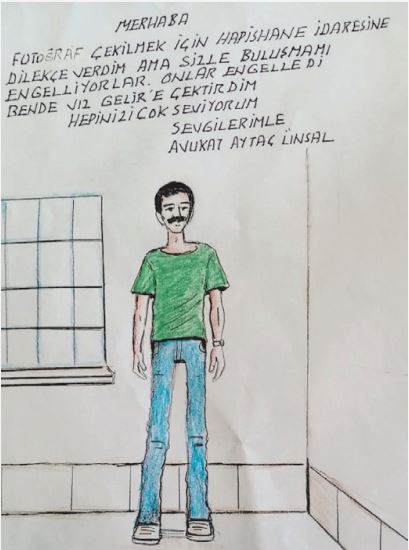 MERHABA
FOTOĞRAF ÇEKİLMEK İÇİN HAPİSHANE İDARESİNE
DİLEKÇE VERDİM AMA SİZLE BULUŞMAMI
ENGELLİYORLAR. ONLAR ENGELLEDİ
BENDE VIZ GELİR'E ÇEKTİRDİM
HEPİNİZİ ÇOK SEVİYORUM
SEVGİLERİMLE
AVUKAT AYTAÇ ÜNSAL